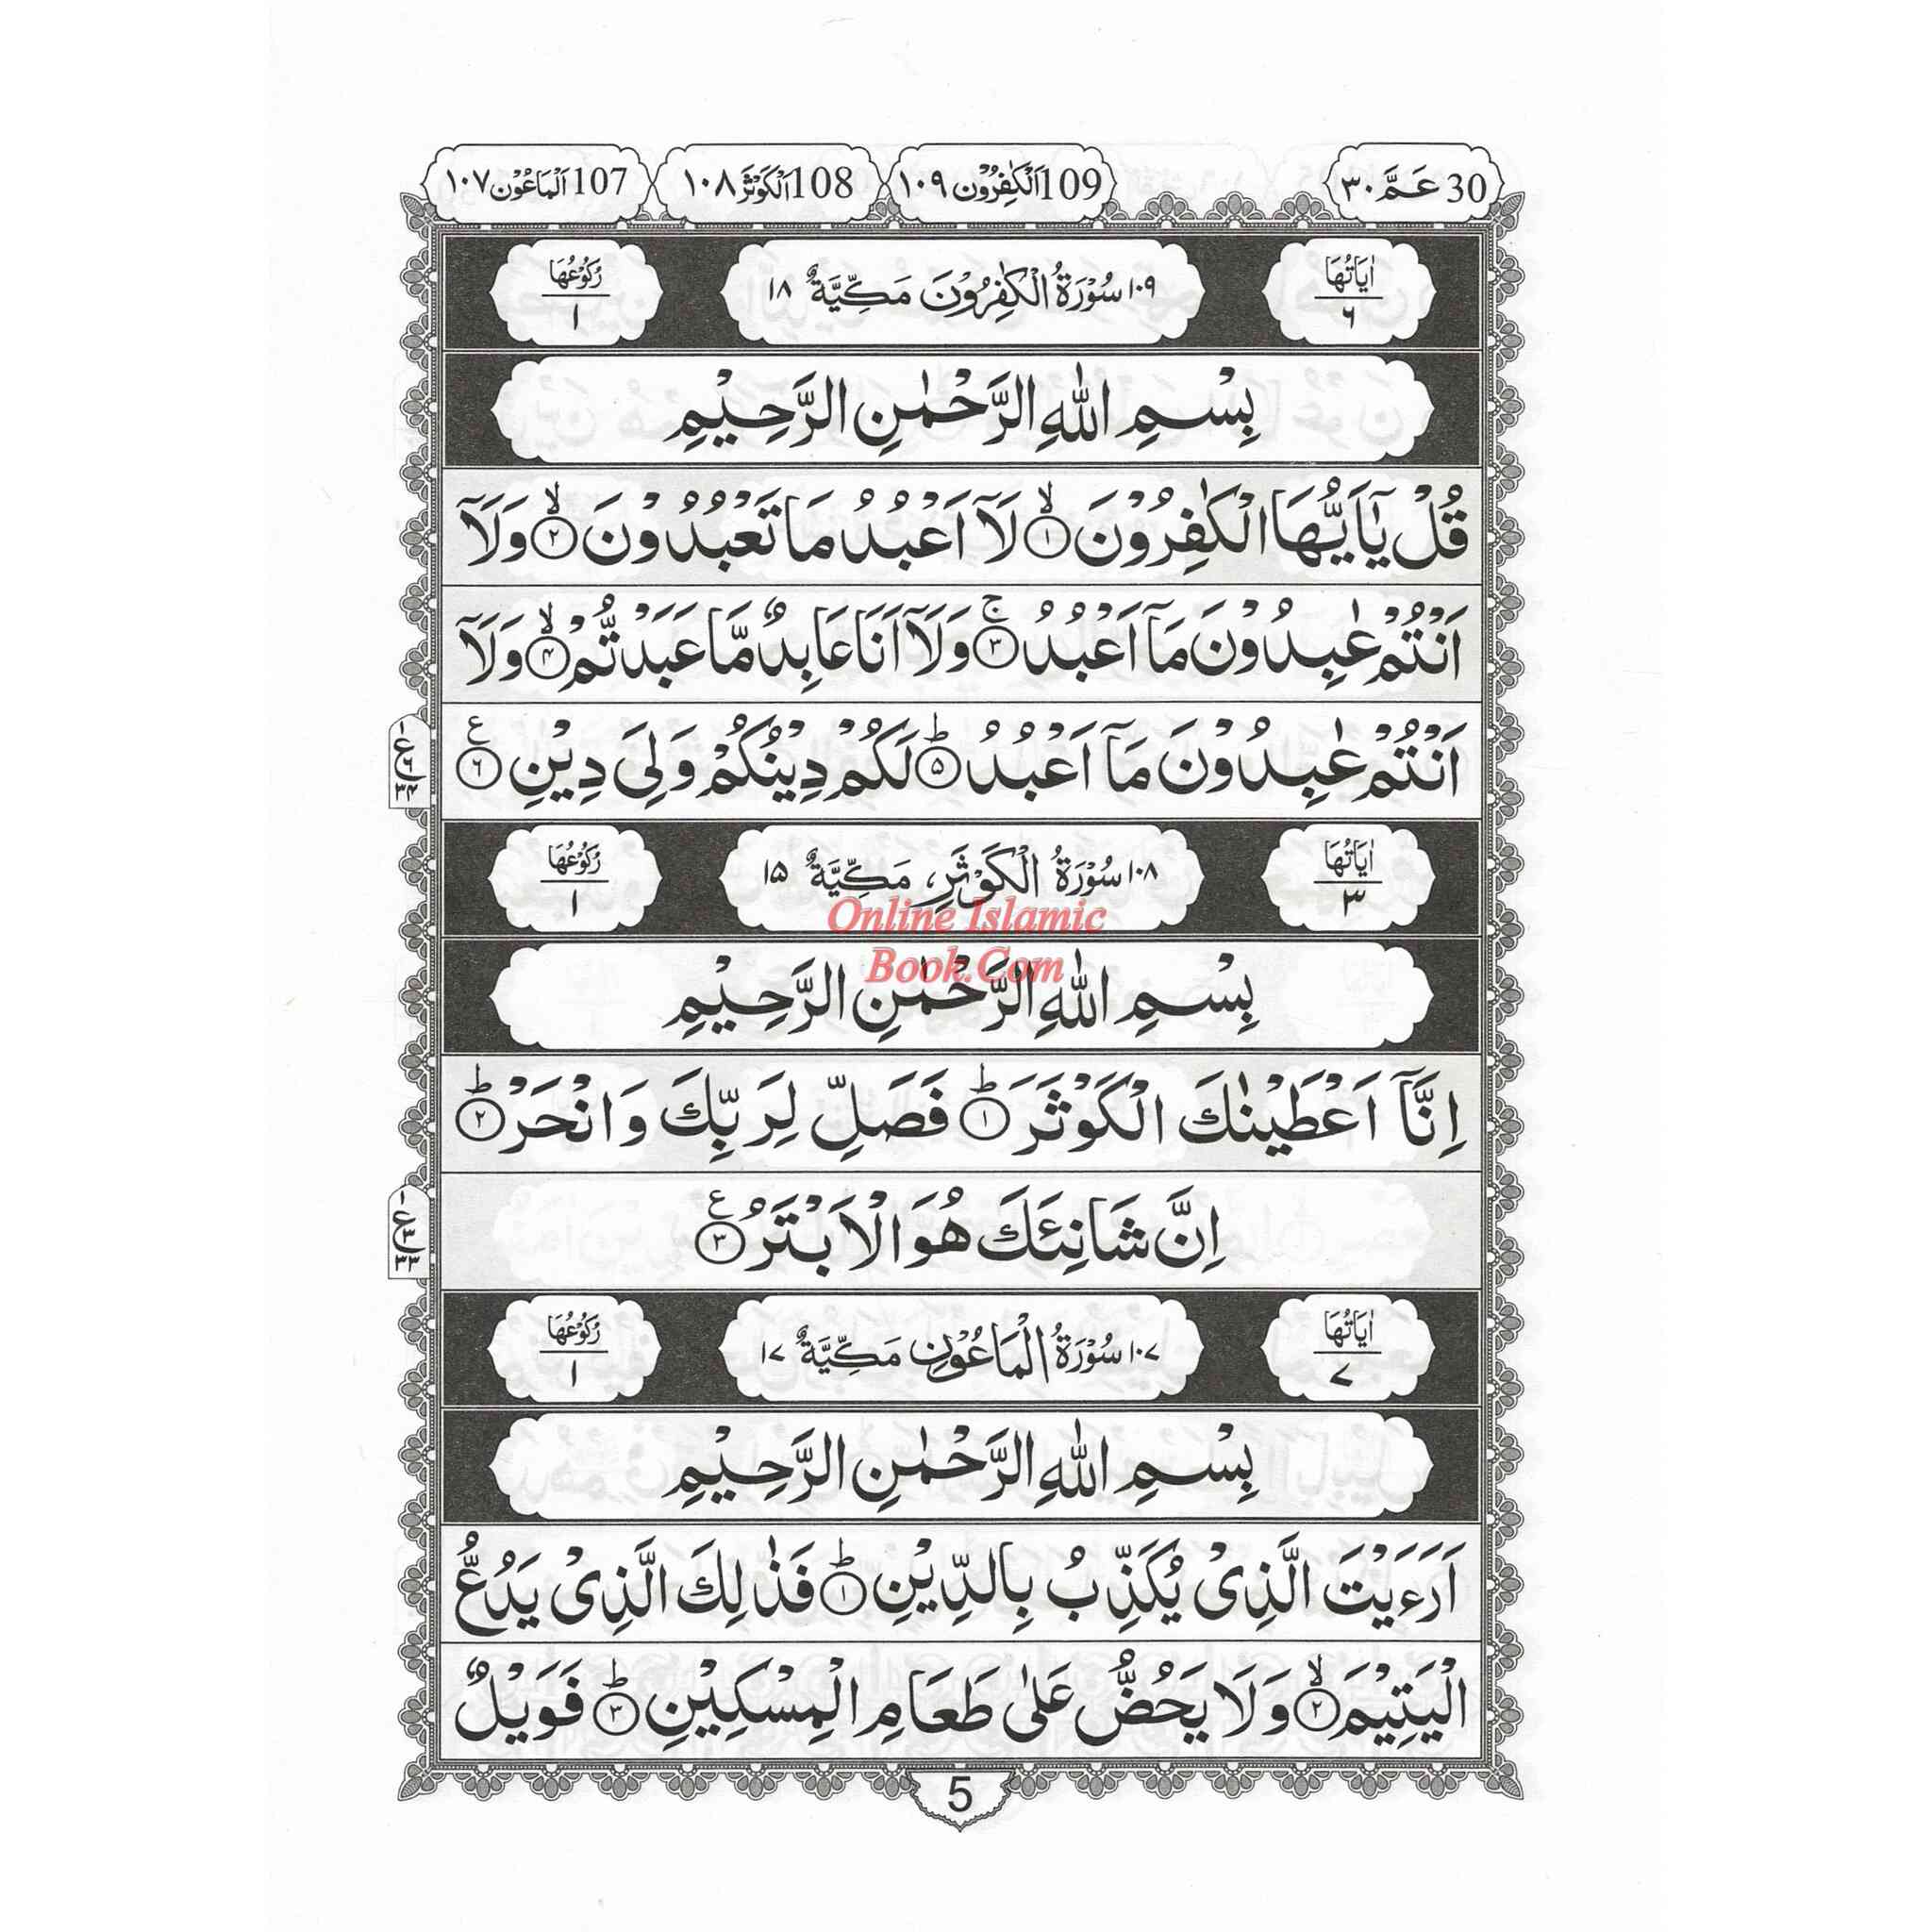 30 عَمَّ ٣٠ 109 اَلْكٰفِرُوْن ١٠٩ 108 اَلْكَوْثَر ١٠٨ 107 اَلْمَاعُوْن ١٠٧
اٰيَاتُهَا ٦ ١٠٩ سُوْرَةُ الْكٰفِرُوْنَ مَكِّيَّةٌ ١٨ رُكُوْعُهَا ١
بِسْمِ اللّٰهِ الرَّحْمٰنِ الرَّحِيْمِ
قُلْ يٰٓاَيُّهَا الْكٰفِرُوْنَ ۙ﴿١﴾ لَآ اَعْبُدُ مَا تَعْبُدُوْنَ ۙ﴿٢﴾ وَلَآ
اَنْتُمْ عٰبِدُوْنَ مَآ اَعْبُدُ ۚ﴿٣﴾ وَلَآ اَنَا عَابِدٌ مَّا عَبَدْتُّمْ ۙ﴿٤﴾ وَلَآ
اَنْتُمْ عٰبِدُوْنَ مَآ اَعْبُدُ ؕ﴿٥﴾ لَكُمْ دِيْنُكُمْ وَلِىَ دِيْنِ ﴿٦﴾ ع
١ ع ٦ ٣٤
اٰيَاتُهَا ٣ ١٠٨ سُوْرَةُ الْكَوْثَرِ مَكِّيَّةٌ ١٥ رُكُوْعُهَا ١
Online Islamic
Book.Com
بِسْمِ اللّٰهِ الرَّحْمٰنِ الرَّحِيْمِ
اِنَّآ اَعْطَيْنٰكَ الْكَوْثَرَ ؕ﴿١﴾ فَصَلِّ لِرَبِّكَ وَانْحَرْ ؕ﴿٢﴾
اِنَّ شَانِئَكَ هُوَ الْاَبْتَرُ ﴿٣﴾ ع
١ ع ٣ ٣٣
اٰيَاتُهَا ٧ ١٠٧ سُوْرَةُ الْمَاعُوْنِ مَكِّيَّةٌ ١٧ رُكُوْعُهَا ١
بِسْمِ اللّٰهِ الرَّحْمٰنِ الرَّحِيْمِ
اَرَءَيْتَ الَّذِىْ يُكَذِّبُ بِالدِّيْنِ ؕ﴿١﴾ فَذٰلِكَ الَّذِىْ يَدُعُّ
الْيَتِيْمَ ۙ﴿٢﴾ وَلَا يَحُضُّ عَلٰى طَعَامِ الْمِسْكِيْنِ ؕ﴿٣﴾ فَوَيْلٌ
5